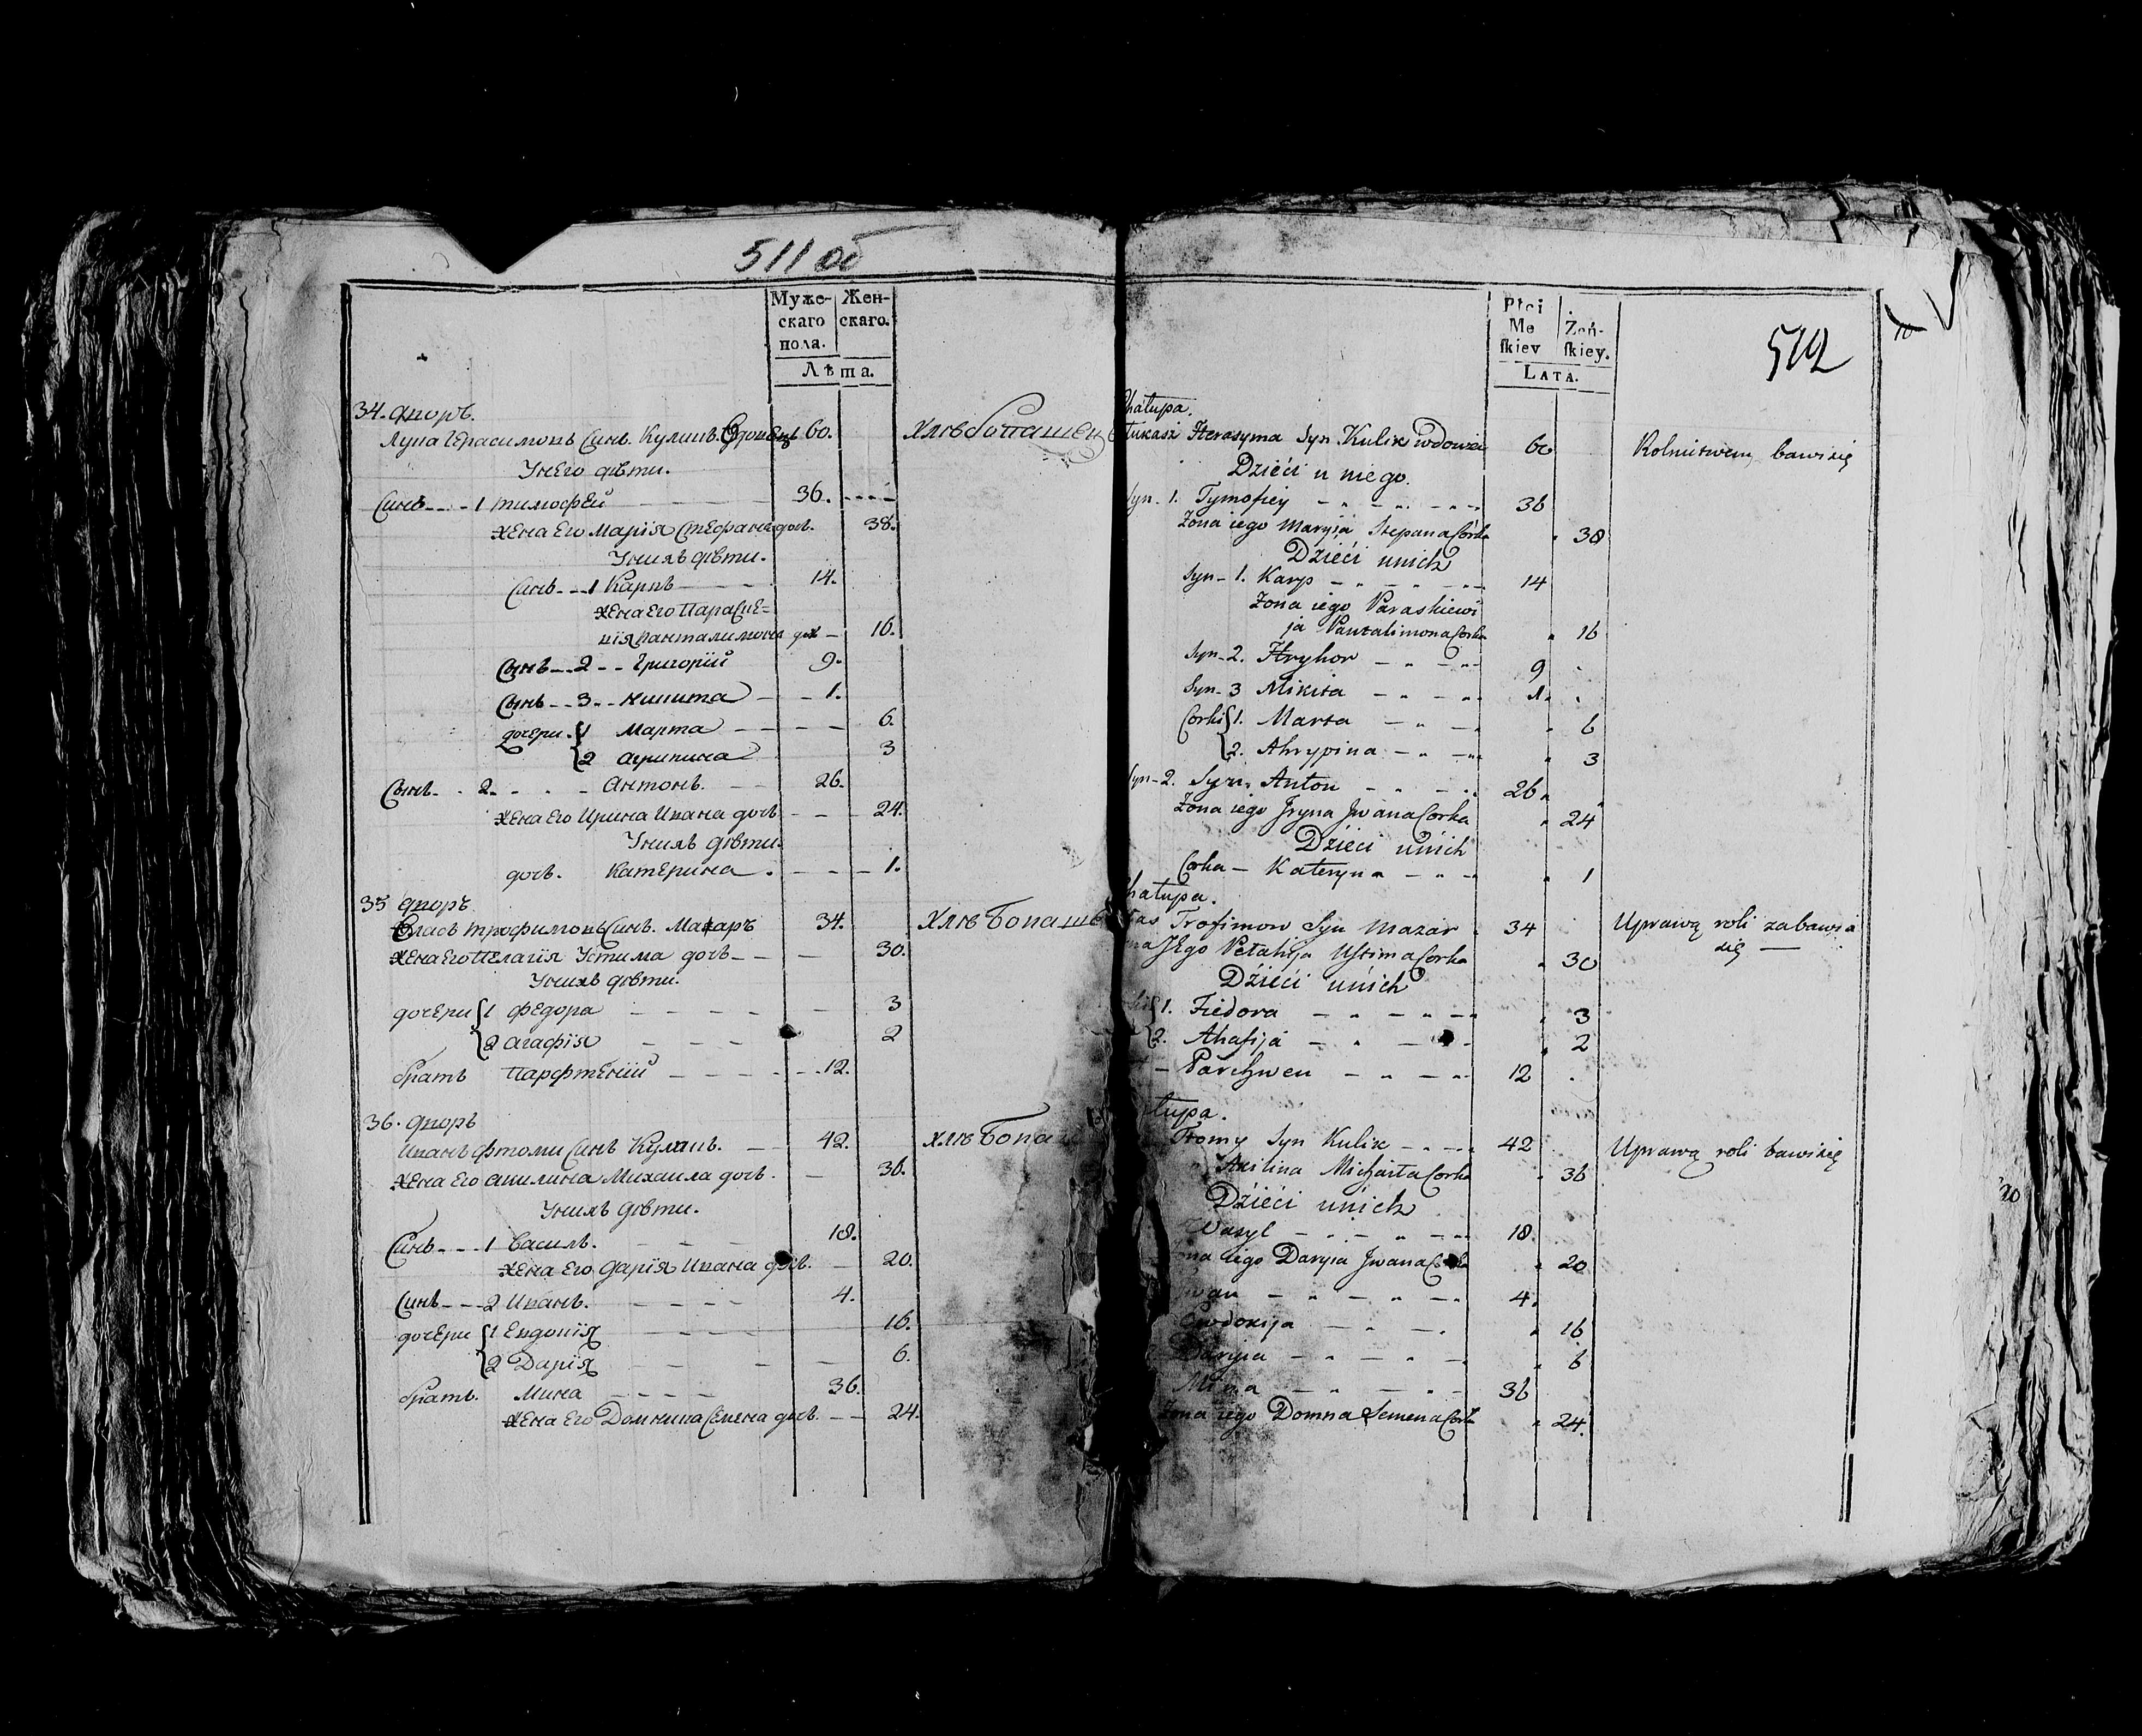 511 об
Муже-
скаго
пола.
Жен-
скаго.
Лѣта.
34. дворъ.
Лука Герасимовъ Синъ. Куликъ. Вдовецъ 60. хлѣбопашец
Унего дѣти.
Синъ 1 Тимофей 36.
жена Его Марія Стефана дочь. 38.
Унихъ дѣти.
Синъ 1 Карпъ 14.
жена Его Параске=
вія Панталимона доч 16.
Сынъ 2 Григорій 9.
Сынъ 3 Никита 1.
дочери 1 Марта 6.
2 Агрипина 3
Сынъ 2. Антонъ. 26.
жена Его Ирина Ивана дочь 24.
Унихъ дѣти.
дочь. Катерина 1.
35 дворъ
Власъ Трофимовъ Синъ. Мазаръ 34. Хлѣбопаше
жена Его Пелагія Устима дочь 30.
Унихъ дѣти.
дочери 1 Федора 3
2 Агафія 2
братъ Парфтеній 12.
36. дворъ
Иванъ Фтоми Синъ Куликъ. 42. хлѣбопа
жена Его Акилина Михаила дочь. 36.
Унихъ дѣти.
Синъ 1 Василь. 18.
жена Его Дарія Ивана дочь. 20.
Синъ 2 Иванъ. 4.
дочери 1 Евдокія 16.
2 Дарія 6.
братъ. Мина 36.
жена Его Домникa Семена дочь. 24.
Płci
Me
ſkiev
Żeń-
ſkiey.
Lata.
512
10
Chałupa.
Łukasz Herasyma Syn Kulik wdowiec 60 Rolnictwem bawi się
Dzieći u niego.
Syn 1. Tymofiey 36
Żona iego Maryia Stepana Córka 38
Dzieći unich
Syn 1. Karp 14
Żona iego Paraskiewi
ja Pantalimona Corka 16
Syn 2. Hryhor 9
Syn 3 Mikita 1.
Corki 1. Marta 6
2. Ahrypina 3
Syn 2. Syn Anton 26
Żona iego Jryna Jwana Corka 24
Dzieci unich
Corka Kateryna 1
Chałupa.
Trofimow Syn Mazar 34 Uprawą roli zabawia
się
Jego Pełahija Ustima Corka 30
Dzieći unich
1. Fiedora 3
2. Ahafija 2
Parchwen 12
łupa.
Tomy Syn Kulik 42 Uprawą roli bawi się
Akilina Michaiła Corka 36
Dzieći unich
Wasyl 18
iego Daryia Jwana Corka 20
Jwan 4.
Ewdokija 16
Daryia 6
Mina 36
Żona iego Domna Semena Corka 24.